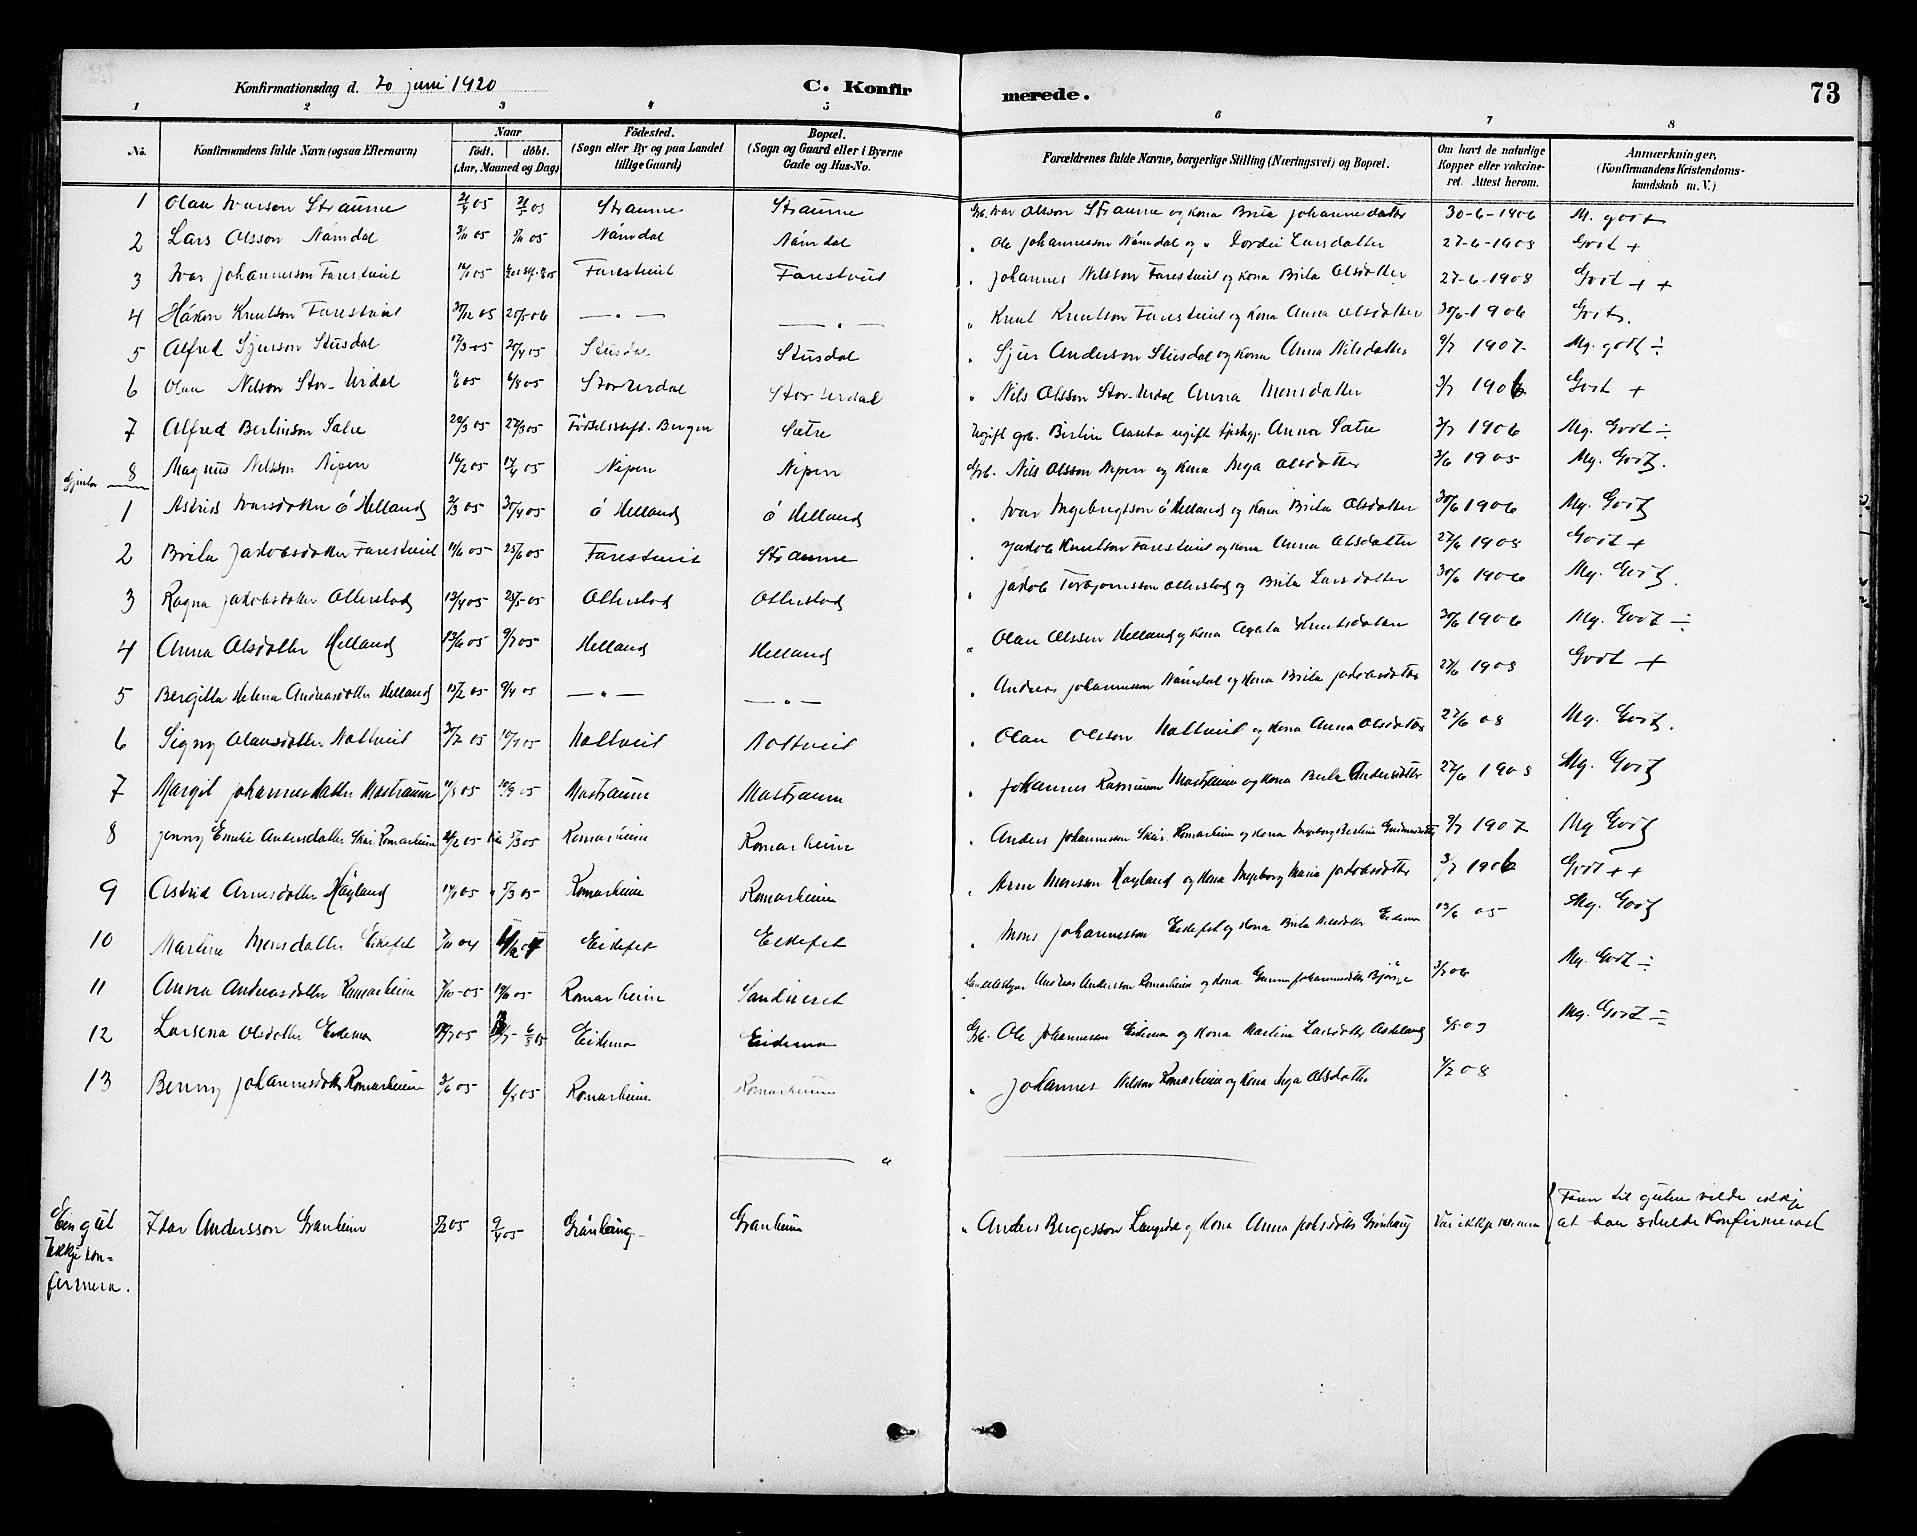 Konfirmationsdag d. 20 juni 1920 C. Konfirmerede. 73
1 2 3 4 5 6 7 8
No. Konfirmandens fulde Navn (ogsaa Efternavn) Naar født. døbt. (Aar, Maaned og Dag) Fødested. (Sogn eller By og paa Landet tillige Gaard) Bopæl. (Sogn og Gaard eller i Byerne Gade og Hus-No. Forældrenes fulde Navne, borgerlige Stilling (Næringsvei) og Bopæl. Om havt de naturlige Kopper eller vakcineret. Attest herom. Anmærkninger. (Konfirmandens Kristendomskundskab m. V.)
1 Olav Ivarson Straume 05 05 Straume Straume Grb. Ivar Olsson Straume og Kona Brita Johannesdatter 30-6-1906 M. godt
2 Lars Olsson Nåmdal 05 05 Nåmdal Nåmdal " Ole Johannesson Nåmdal og " Larsdatter 27-6-1908 Godt +
3 Ivar Johannesson Farestveit 05 Farestveit Farestveit " Johannes Nilsson Farestveit og Kona Brita Olsdotter 27-6-1908 Godt + +
4 Håkon Knutson Farestveit 30/12 05 20/5 06 — " — — " — " Knut Knutson Farestveit og Kona Anna Olsdotter 30/6-1906 Godt.
5 Alfred Sjurson Stusdal 17/3-05 24/4 05 Stusdal Stusdal " Sjur Anderson Stusdal og Kona Anna Nilsdotter 9/7 1907 Mg. godt ÷
6 Olav Nilson Stor-Urdal 05 6/8 05 Stor Urdal Stor Urdal " Nils Olsson Stor-Urdal Anna Monsdatter 3/7 1906 Godt +
7 Alfred Berlinson Sætre 20/3 05 27/3 05 Fødselsstift. Bergen Sætre Ugift grb. Berlin ugift Anna Sætre 3/7 1906 Mg. Godt ÷
8 Magnus Nilsson Nipen 16/2 05 17/4 05 Nipen Nipen Grb. Nils Olsson Nipen og Kona Inga Olsdotter 3/6 1905 Mg. Godt.
Gjentor
1 Astrid Ivarsdotter ó Helland 2/3 05 30/4 05 ó Helland ó Helland " Ivar Ingebrigtson ó Helland og Kona Brita Olsdotter 30/6 1906 Mg. Godt
2 Brita Jakobsdotter Farestveit 11/6 05 25/6 05 Farestveit Straume " Jakob Knutson Farestveit og Kona Anna Olsdatter 27/6 1908 Godt +
3 Ragna Jakobsdotter Otterstad 13/4 05 28/5-05 Otterstad Otterstad " Jakob Torbjørnsson Otterstad og Brita Larsdotter 30/6 1906 Mg. Godt.
4 Anna Olsdotter Helland 13/6 05 9/7 05 Helland Helland " Olav Olsson Helland og Kona Agata Knutsdotter 30/6 1906 Mg. Godt ÷
5 Bergitta Helena Andreasdotter Helland 15/2 05 9/4 05 — " — — " — " Andreas Johannesson Nåmdal og Kona Brita Jakobsdotter 27/6 1908 Godt +
6 Signy Olavsdotter Nottveit 05 05 Nottveit Nottveit " Olav Olsson Nottveit og Kona Anna Olsdotter 27/6 08 Mg. Godt.
7 Margit Johannesdatter Mostraum 11/8 05 10/9 05 Mostraum Mostraum " Johannes Rasmusson Mostraum og Kona Brita Andersdotter 27/6 1908 Mg. Godt
8 Jenny Emilie Andersdatter Skår Romarheim 05 5/3 05 Romarheim Romarheim " Anders Johannesson Skår Romarheim og Kona Ingeborg Berlina 9/7 1907 Mg Godt
9 Astrid Arnesdotter Høyland 14/1 05 5/3 05 Romarheim Romarheim " Arne Monson Høyland og Kona Ingeborg Maria Jakobsdotter 3/7 1906 Godt + +
10 Martina Monsdatter Eikefet 7/11 04 Eikefet Eikefet " Mons Johannesson Eikefet og Kona Brita Eidema 13/6 05 Mg. Godt
11 Anna Andreasdotter Romarheim 7/10-05 05 Romarheim Sandneset Andreas Andersson Romarheim og Kona Gunna Johannesdotter Bjørge 3/7 06 Mg. Godt ÷
12 Larsena Olsdotter Eidema 05 05 Eidema Eidema Grb. Ole Johannesson Eidema og Kona Martina Larsdotter Askeland 09 Mg. Godt ÷
13 Benny Johannesdotter Romarheim 3/6 05 6/8 05 Romarheim Romarheim " Johannes Nilsson Romarheim og Kona Inga Olsdotter 4/2 08
Ein gut ikkje konfirmera. Ivar Andersson Granheim 05 9/4 05 Grønhaug Granheim " Anders Bergesson og Kona Anna Grønhaug Var ikkje Faren til guten vilde ikkje at han skulde konfirmerast